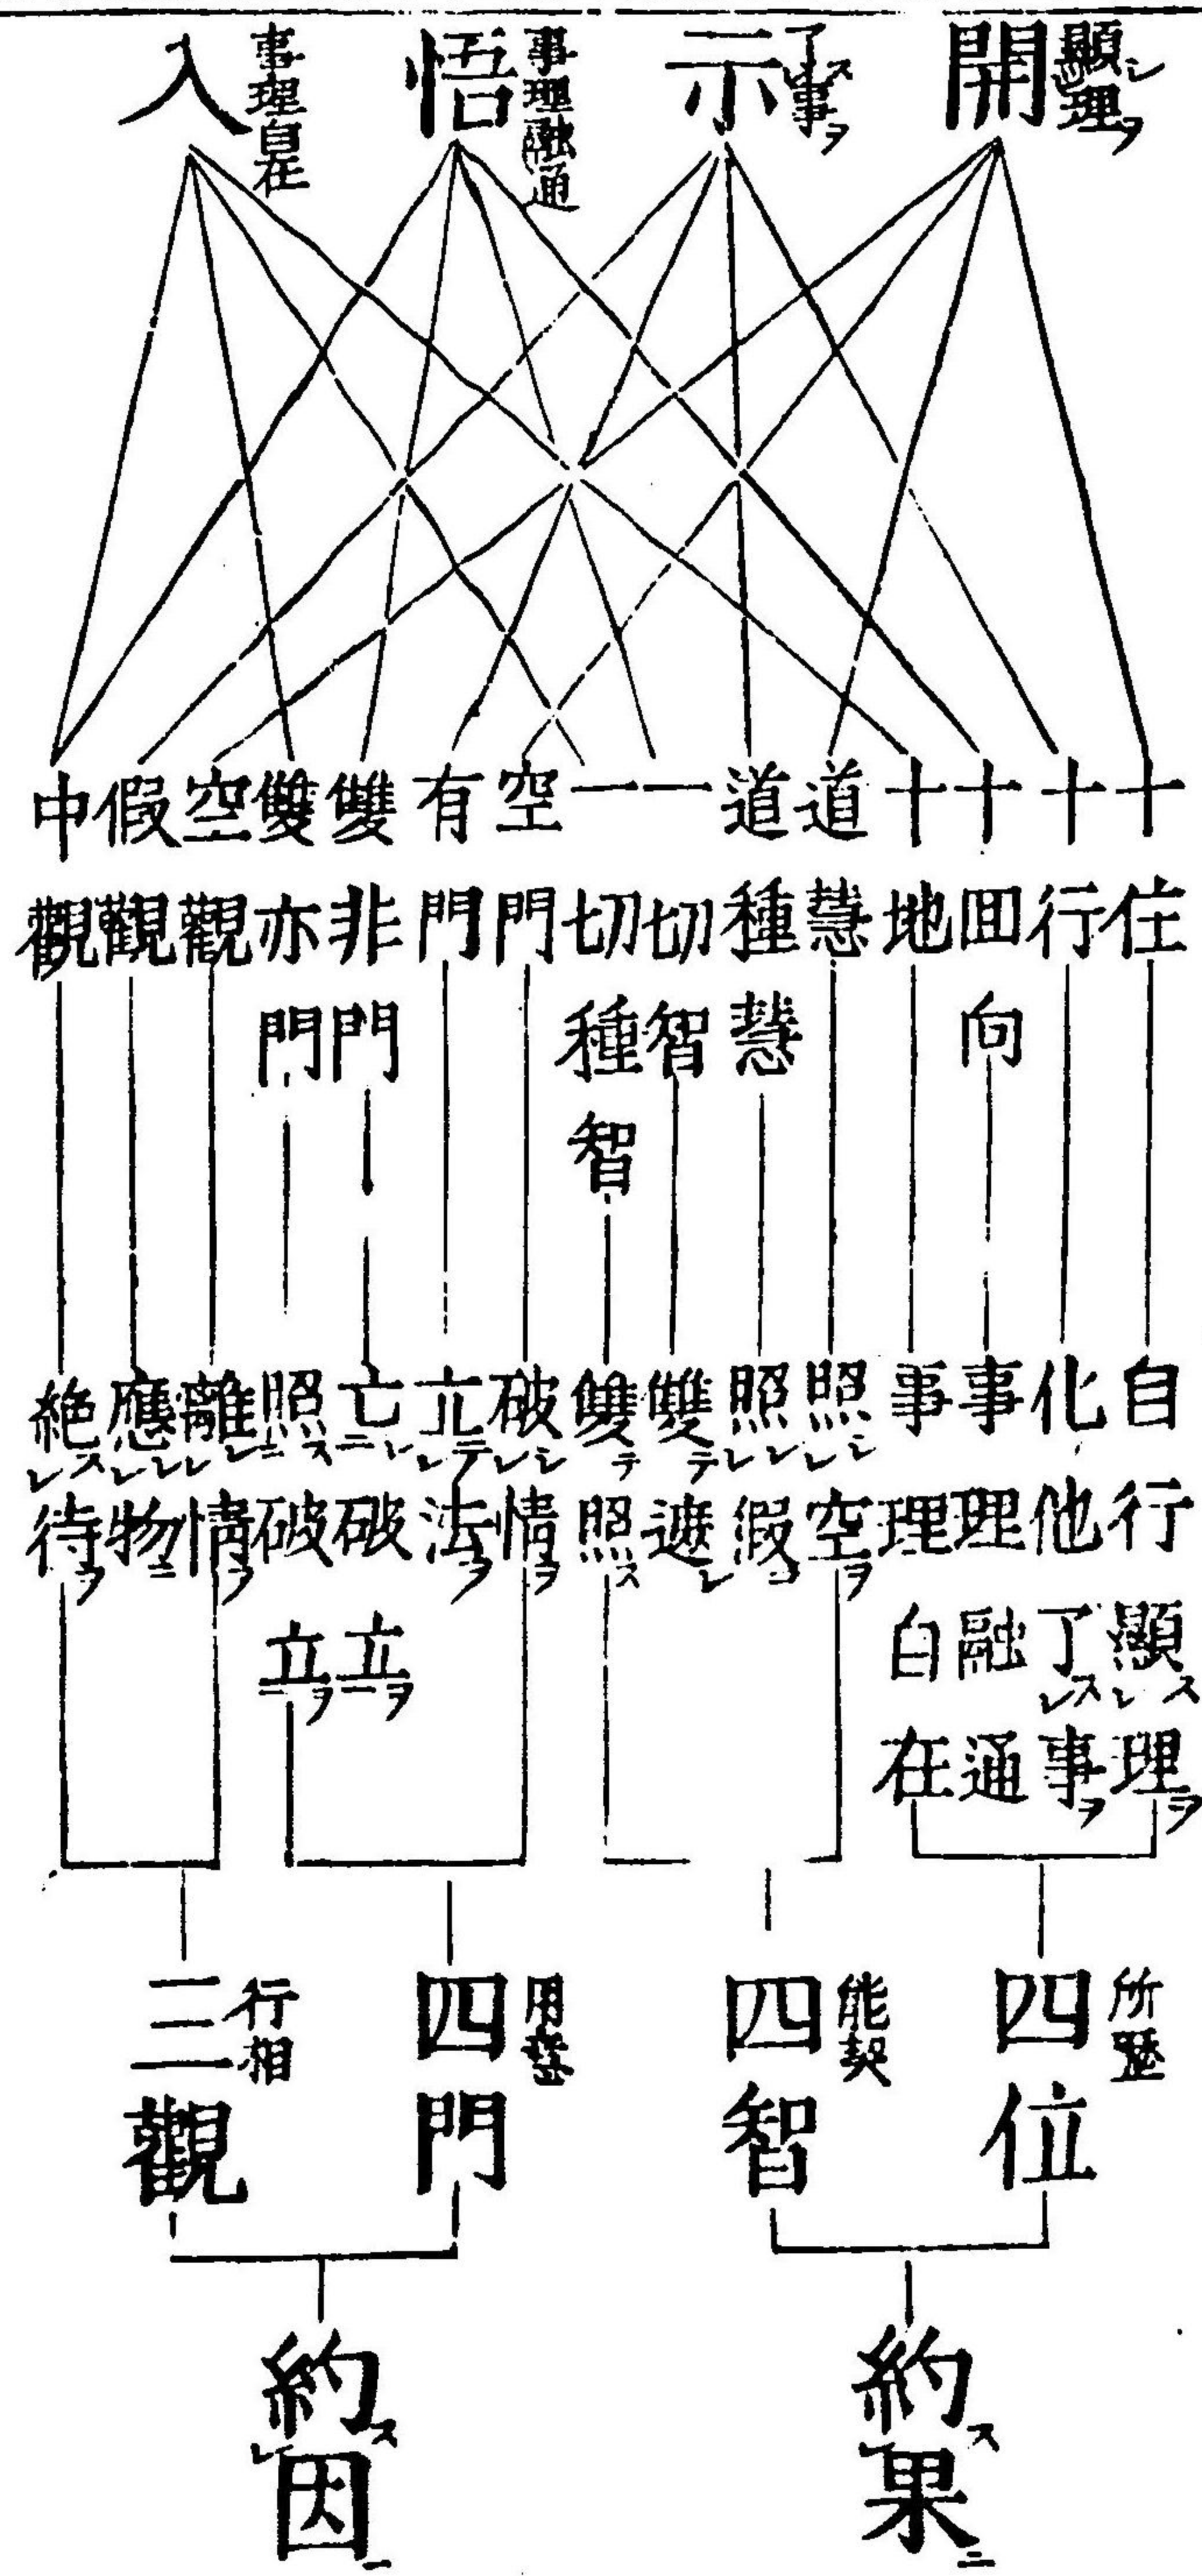 開
顯理
示
了事
悟
事理融通
入
事理自在
十住
十行
十囬向
十地
道慧
道種慧
一切智
一切種智
空門
有門
雙非門
雙亦門
空觀
假觀
中觀
自行顯スレ理ヲ
化他了スレ事ヲ
事理融通
事理自在
照シレ空ヲ
照レ假ヲ
雙テ遮シ
雙テ照ス
破シレ情ヲ
立テレ法ヲ
亡二破立ヲ一
照ス二破立ヲ一
離レ情ヲ
應レ物ニ
絶スレ待ヲ
四位
所歷
四智
能契
四門
用
三觀
行相
約スレ果ニ
約スレ因ニ